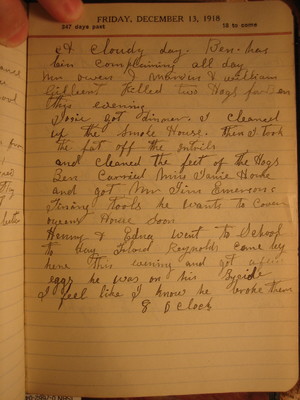 FRIDAY, DECEMBER 13, 1918
347 days past
18 to come
A cloudy day. Ben has
bin complaining all day
Mr Owens J Marcus & William
Gilbert Killed two Hogs for Ben
this evening
Josie got dinner. I cleaned
up the Smoke House. Then I took
the fat off the entrils
and cleaned the feet of the Hogs
Ben Carried Miss Janie Home
and got Mr Tim Emersons
Tools he wants to Cover
Owens House Soon
Henry & Edna went to School
to day Reynolds came by
here this evening and got a few
eggs he was on his
I feel like I know he broke them
8 O Clock